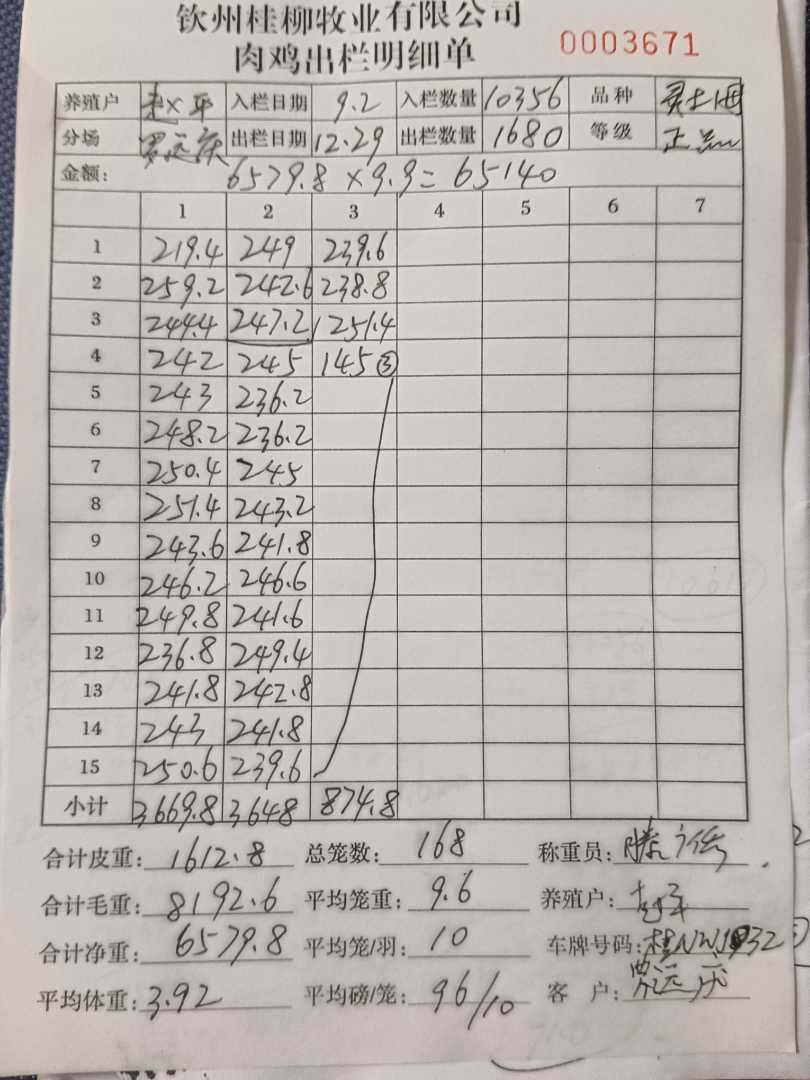 钦州桂柳牧业有限公司
肉鸡出栏明细单 0003671
养殖户 入栏日期 9.2 入栏数量 10356 品种
分场 罗运庆 出栏日期 12.29 出栏数量 1680 等级 正
金额: 6579.8×9.9=65140
1 2 3 4 5 6 7
1 219.4 249 239.6
2 259.2 242.6 238.8
3 244.4 247.2 251.4
4 242 245 145③
5 243 236.2
6 248.2 236.2
7 250.4 245
8 251.4 243.2
9 243.6 241.8
10 246.2 246.6
11 249.8 241.6
12 236.8 249.4
13 241.8 242.8
14 243 241.8
15 250.6 239.6
小计 3669.8 3648 874.8
合计皮重: 1612.8 总笼数: 168 称重员:
合计毛重: 8192.6 平均笼重: 9.6 养殖户:
合计净重: 6579.8 平均笼/羽: 10 车牌号码:
平均体重: 3.92 平均磅/笼: 96/10 客户: